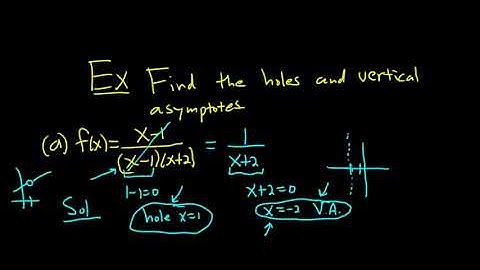 Ex Find the holes and vertical
asymptotes
(a) f(x)= x-1 / (x-1)(x+2) = 1 / x+2
1-1=0 x+2=0
Sol hole x=1 x=-2 V.A.